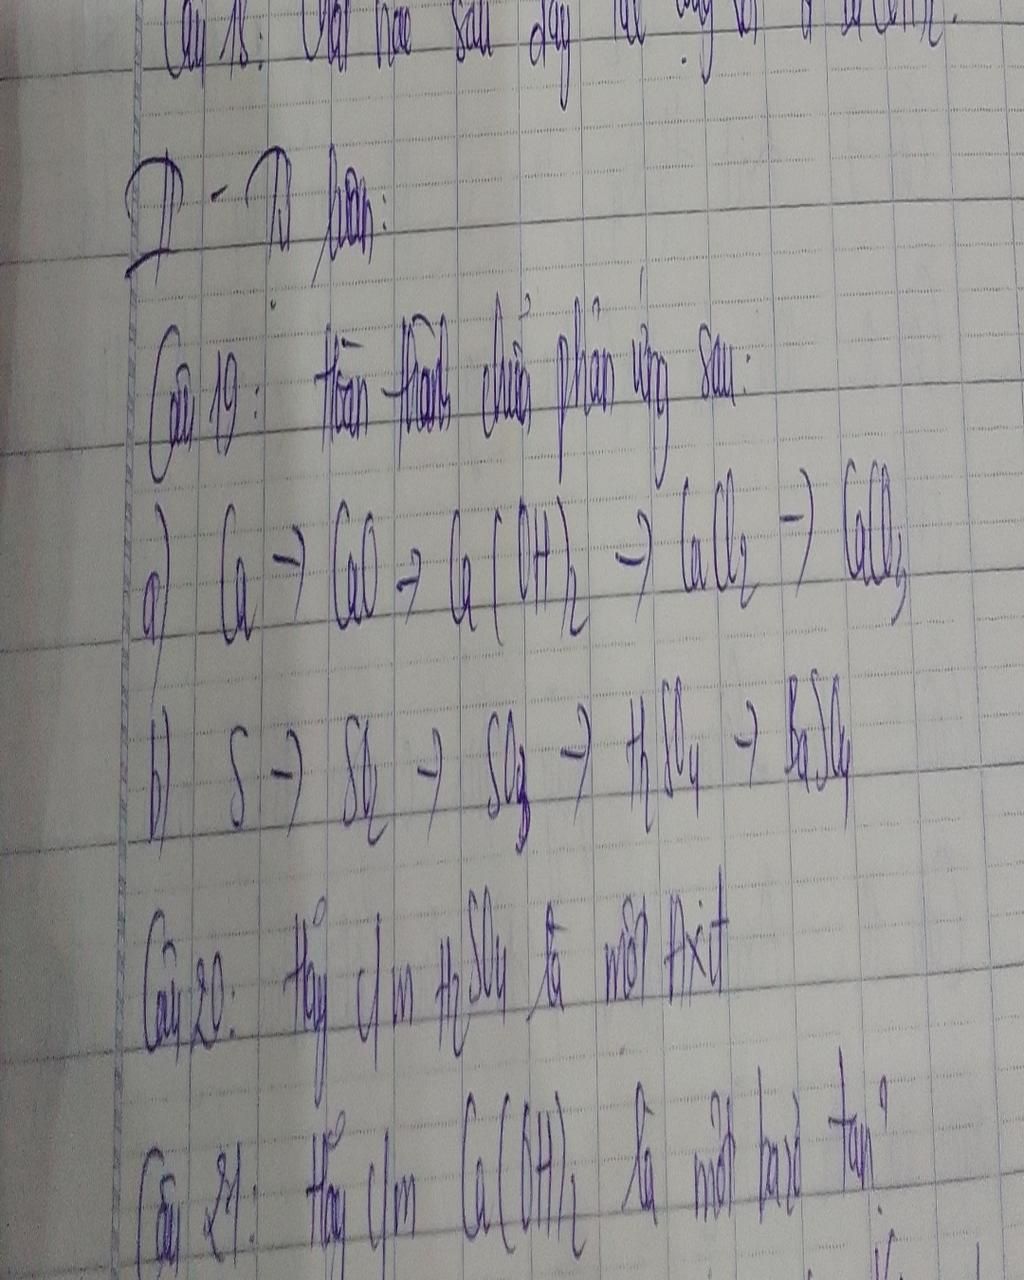 Câu 18: Chất nào sau đây tác dụng với
II - Tự luận:
Câu 19: Hoàn thành chuỗi phản ứng sau:
a) Ca → CaO → Ca(OH)₂ → CaCl₂ → CaCO₃
b) S → SO₂ → SO₃ → H₂SO₄ → BaSO₄
Câu 20: Hãy c/m H₂SO₄ là một Axit
Câu 21: Hãy c/m Ca(OH)₂ là một bazơ tan?